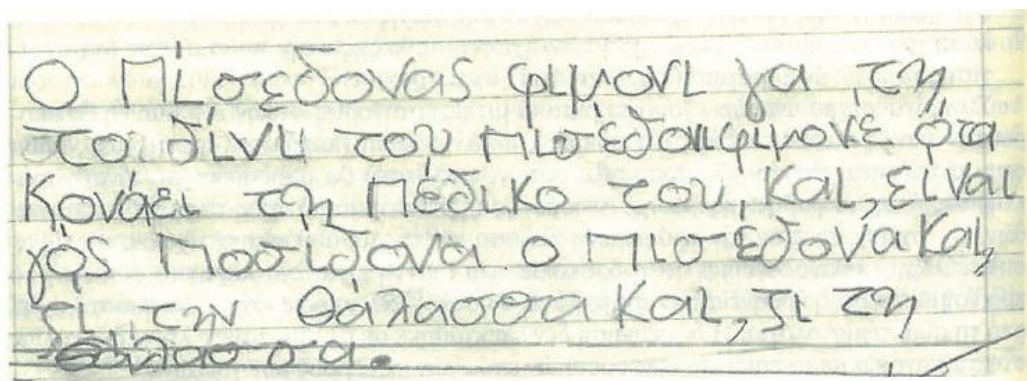 Ο Πίσεδονας φιμονι γα την
στο δινη του Πισεδοπιφιμονε ότα
Κονάει τη πέδικο του και, ειναι
γός Ποσιδονα ο Πισεδονα Και,
ζι, την θάλασσα Και, ζι τη
θάλασσα.